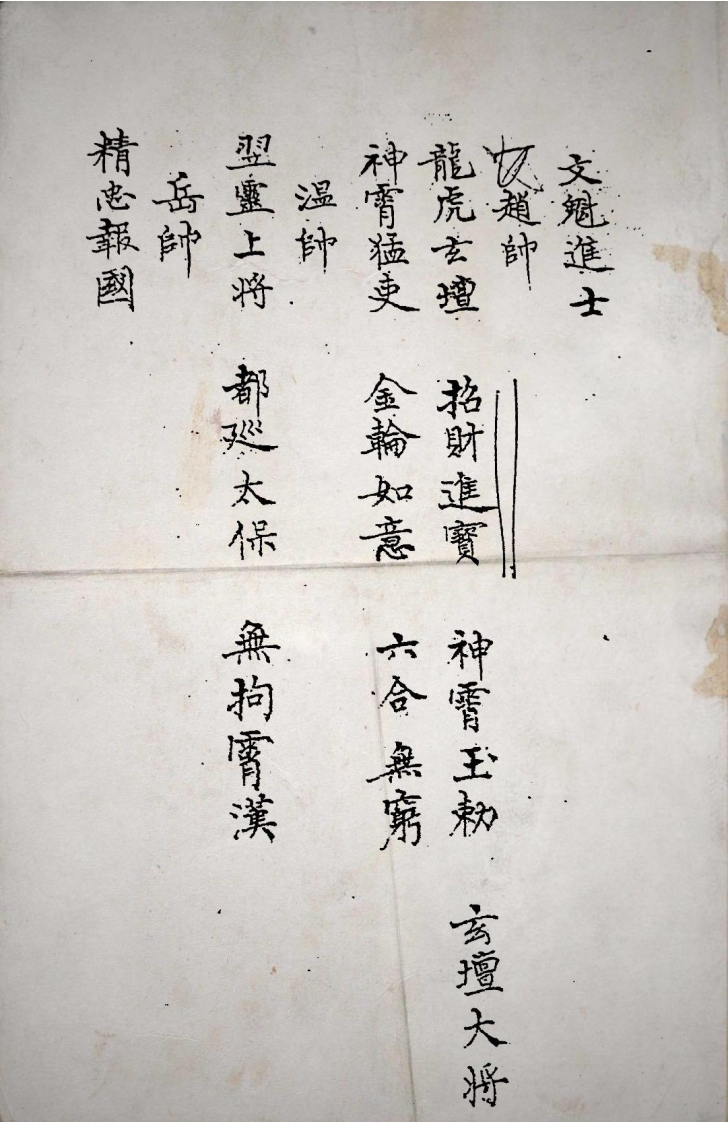 文魁進士
趙帥
龍虎玄壇 招財進寶 神霄玉勅 玄壇大将
神霄猛吏 金輪如意 六合無窮
温帥
翌靈上将 都廵太保 無拘霄漢
岳帥
精忠報國